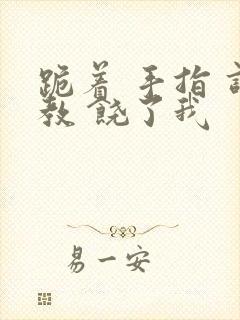 跪着 手指
教 饶了我
易一安